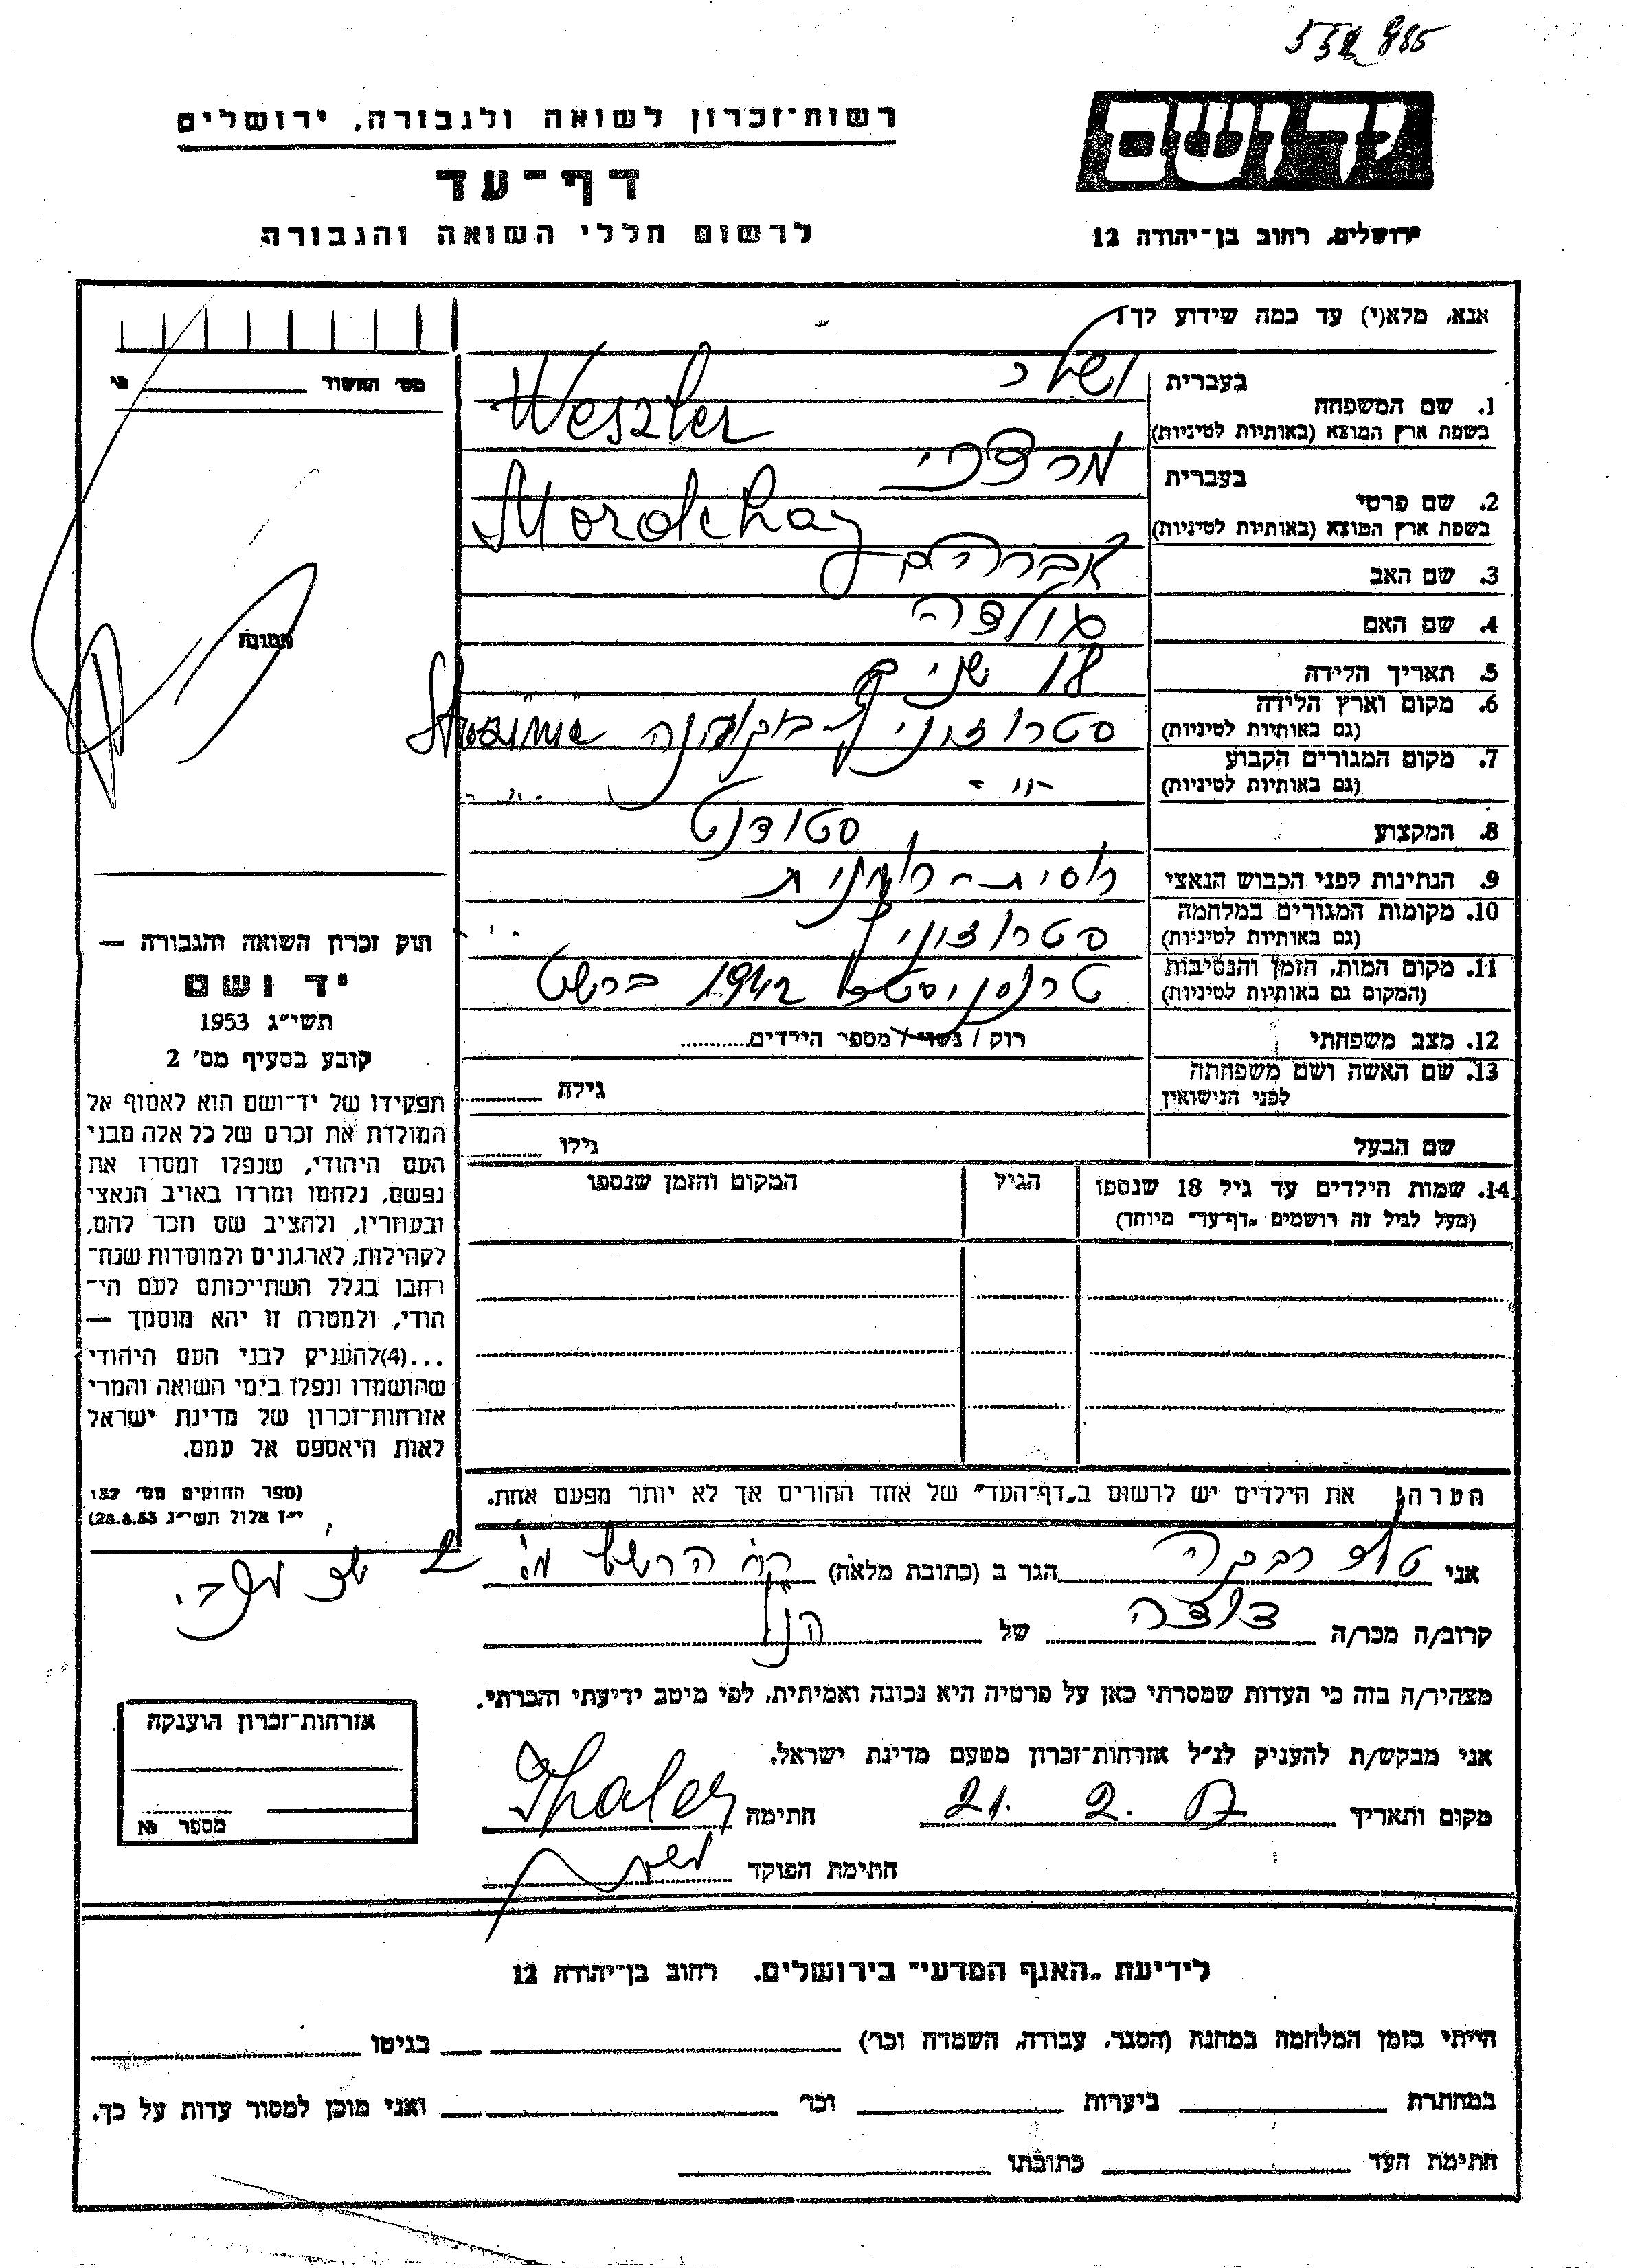 רשות־זכרון לשואה ולגבורה, ירושלים
דף־עד
לרשום חללי השואה והגבורה
ירושלים, רחוב בן־יהודה 12
אנא, מלא(י) עד כמה שידוע לך!
מס' האשור №
1. שם המשפחה בעברית
בשפת ארץ המוצא (באותיות לטיניות) Weszler
2. שם פרטי בעברית מרדכי
בשפת ארץ המוצא (באותיות לטיניות) Mordchay
3. שם האב אברהם
4. שם האם גולדה
5. תאריך הלידה 18 שנים
6. מקום וארץ הלידה
(גם באותיות לטיניות)
7. מקום המגורים הקבוע
(גם באותיות לטיניות) -"-
8. המקצוע סטודנט
9. הנתינות לפני הכבוש הנאצי
10. מקומות המגורים במלחמה
(גם באותיות לטיניות)
11. מקום המות, הזמן והנסיבות 1942
(המקום גם באותיות לטיניות)
12. מצב משפחתי רוק / נשוי / מספר הילדים
13. שם האשה ושם משפחתה
לפני הנישואין גילה
שם הבעל גילו
14. שמות הילדים עד גיל 18 שנספו הגיל המקום והזמן שנספו
(מעל לגיל זה רושמים „דף־עד" מיוחד)
הערה: את הילדים יש לרשום ב„דף־העד" של אחד ההורים אך לא יותר מפעם אחת.
תמונה
חוק זכרון השואה והגבורה —
יד ושם
תשי"ג 1953
קובע בסעיף מס' 2
תפקידו של יד־ושם הוא לאסוף אל
המולדת את זכרם של כל אלה מבני
העם היהודי, שנפלו ומסרו את
נפשם, נלחמו ומרדו באויב הנאצי
ובעוזריו, ולהציב שם וזכר להם,
לקהילות, לארגונים ולמוסדות שנח־
רבו בגלל השתייכותם לעם הי־
הודי, ולמטרה זו יהא מוסמך —
...(4)להעניק לבני העם היהודי
שהושמדו ונפלו בימי השואה והמרי
אזרחות־זכרון של מדינת ישראל
לאות היאספם אל עמם.
(ספר החוקים מס' 132,
י"ז אלול תשי"ג 28.8.53)
אני רבקה הגר ב (כתובת מלאה)
קרוב/ה מכר/ה דודה של הנ"ל
מצהיר/ה בזה כי העדות שמסרתי כאן על פרטיה היא נכונה ואמיתית, לפי מיטב ידיעתי והכרתי.
אני מבקש/ת להעניק לנ"ל אזרחות־זכרון מטעם מדינת ישראל.
מקום ותאריך 21. 2. חתימה Thaler
חתימת הפוקד
אזרחות־זכרון הוענקה
מספר №
לידיעת „האגף המדעי" בירושלים, רחוב בן־יהודה 12
הייתי בזמן המלחמה במחנה (הסגר, עבודה, השמדה וכו') בגיטו
במחתרת ביערות וכו' ואני מוכן למסור עדות על כך.
חתימת העד כתובתו